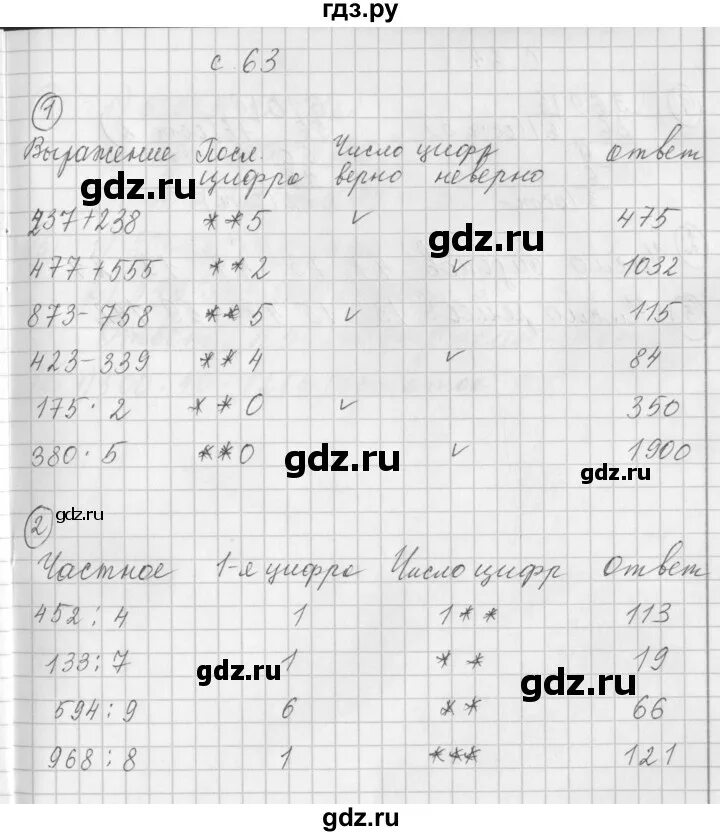 гдз.ру
с 63
1
Выражение Посл. Число цифр ответ
цифра верно неверно
gdz.ru
237+238 **5 ✓ 475
gdz.ru
477+555 **2 ✓ 1032
873-758 **5 ✓ 115
423-339 **4 ✓ 84
175·2 **0 ✓ 350
380·5 **0 ✓ 1900
gdz.ru
gdz.ru
2 gdz.ru
Частное 1-я цифра Число цифр ответ
452:4 1 1** 113
133:7 1 ** 19
gdz.ru
gdz.ru
594:9 6 ** 66
968:8 1 *** 121
gdz.ru